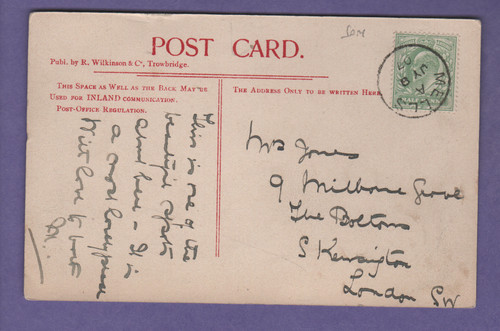 Som
POST CARD.
Publ. by R. Wilkinson & Co, Trowbridge.
This Space as Well as the Back May be
Used for INLAND communication.
Post-Office Regulation.
The Address Only to be written Here.
This is one of the
beautiful spots
about here - It is
a most lovely place
With love to both
M.
Mrs Jones
9 Milborne Grove
The Boltons
S Kensington
London SW
MELLS
A
JY 8